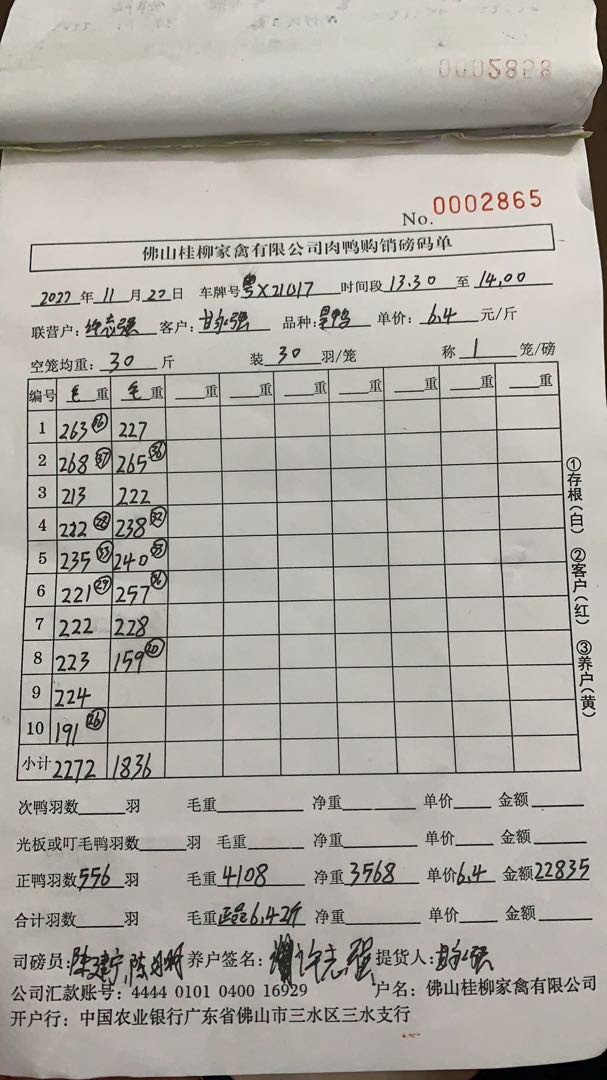 0002858
No. 0002865
佛山桂柳家禽有限公司肉鸭购销磅码单
2022年11月22日 车牌号粤X21017 时间段13.30至14.00
联营户:许志强 客户:甘永强 品种: 单价:6.4元/斤
空笼均重:30斤 装30羽/笼 称1笼/磅
编号 毛重 毛重 重 重 重 重 重 重
1 263 36 227
2 268 37 265 36
3 213 222
4 222 28 238 32
5 235 33 240 33
6 221 29 257 36
7 222 228
8 223 159 20
9 224
10 191 26
小计 2272 1836
①存根(白) ②客户(红) ③养户(黄)
次鸭羽数 羽 毛重 净重 单价 金额
光板或叮毛鸭羽数 羽 毛重 净重 单价 金额
正鸭羽数556羽 毛重4108 净重3568 单价6.4 金额22835
合计羽数 羽 毛重 6.42斤 净重 单价 金额
司磅员: 养户签名:许志强 提货人:甘永强
公司汇款账号:4444 0101 0400 16929 户名:佛山桂柳家禽有限公司
开户行:中国农业银行广东省佛山市三水区三水支行